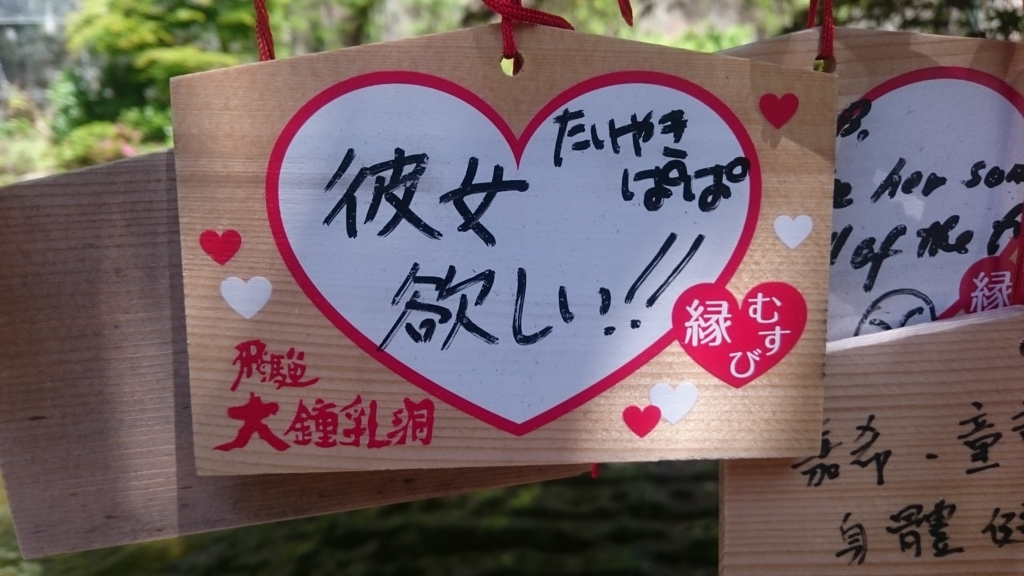 たいやき
ぱぱ
彼女
欲しい!!
縁
むすび
飛騨
大鍾乳洞
her
of the
縁
嘉希・童
身體